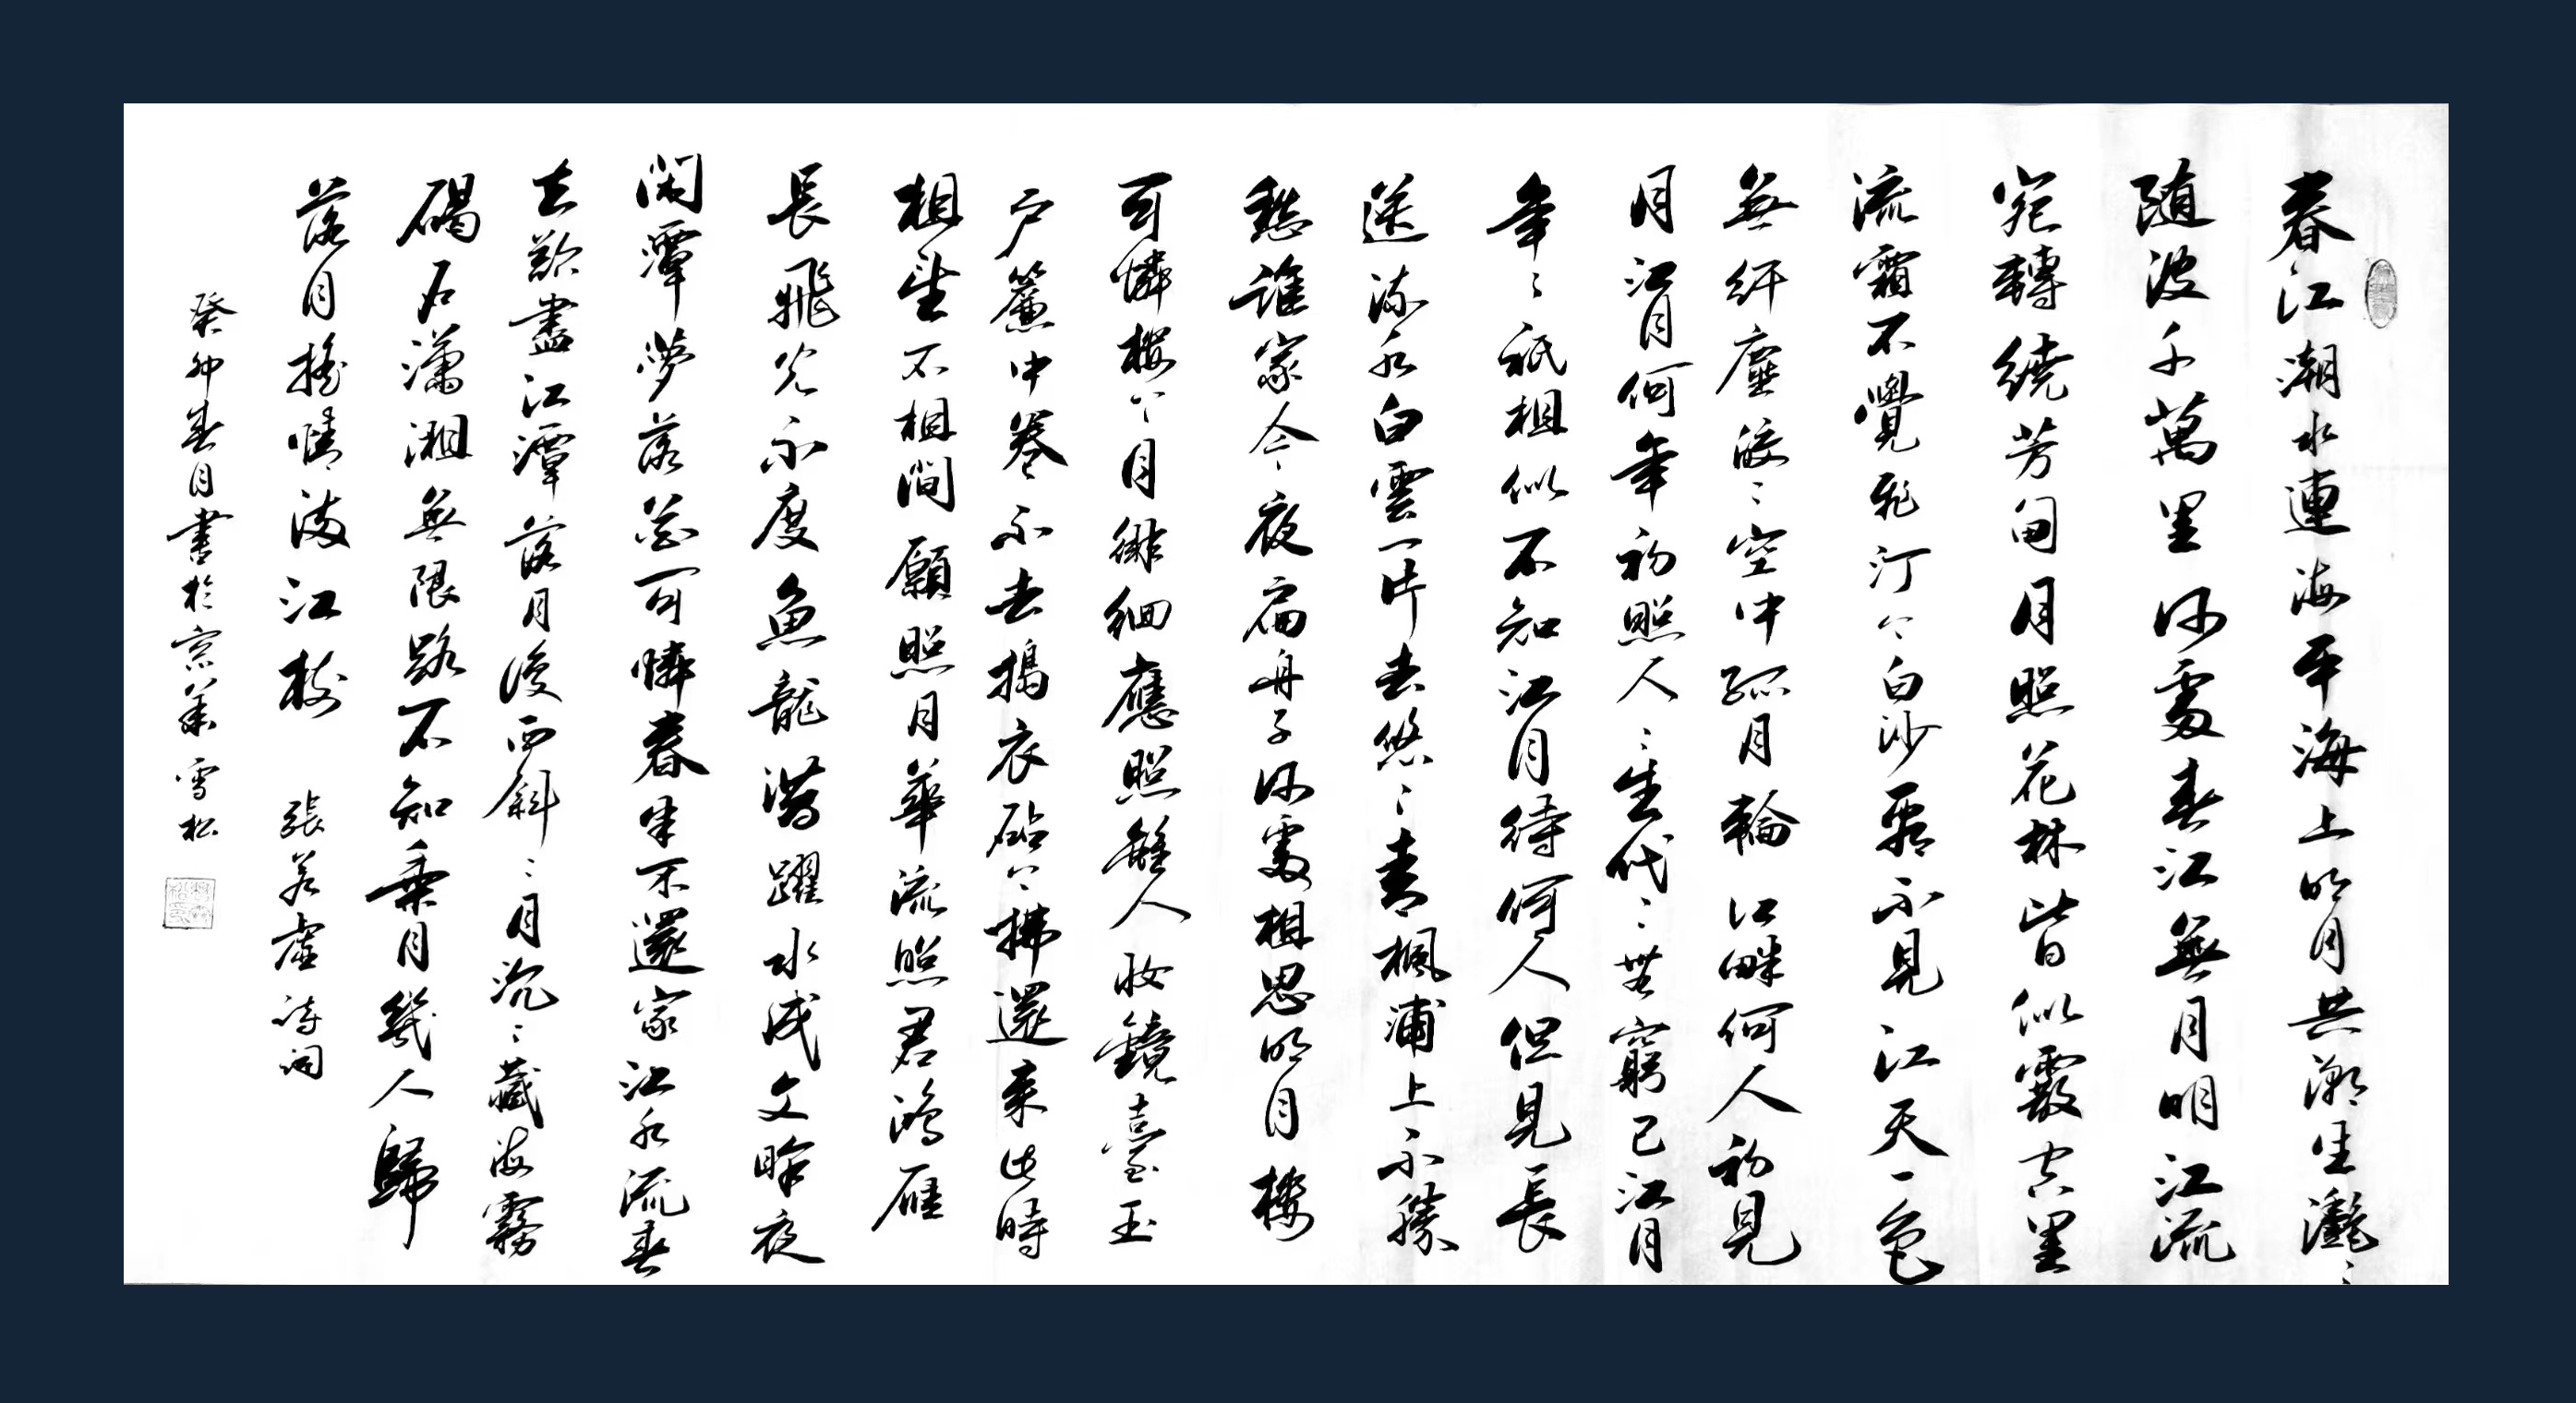 春江潮水連海平海上明月共潮生灩〻
随波千萬里何處春江無月明江流
宛轉繞芳甸月照花林皆似霰空里
流霜不覺飛汀上白沙看不見江天一色
無纤塵皎〻空中孤月輪江畔何人初見
月江月何年初照人〻生代〻無窮已江月
年〻祇相似不知江月待何人但見長
送流水白雲一片去悠〻青楓浦上不勝
愁誰家今夜扁舟子何處相思明月樓
可憐樓上月徘徊應照離人妝鏡臺玉
户簾中卷不去搗衣砧上拂還来此時
相望不相聞願照月華流照君鴻雁
長飛光不度魚龍潜躍水成文昨夜
閑潭夢落花可憐春半不還家江水流春
去欲盡江潭落月復西斜〻月沉〻藏海霧
碣石瀟湘無限路不知乘月幾人歸
落月摇情滿江樹 張若虚詩詞
癸卯春月書於京華雪松